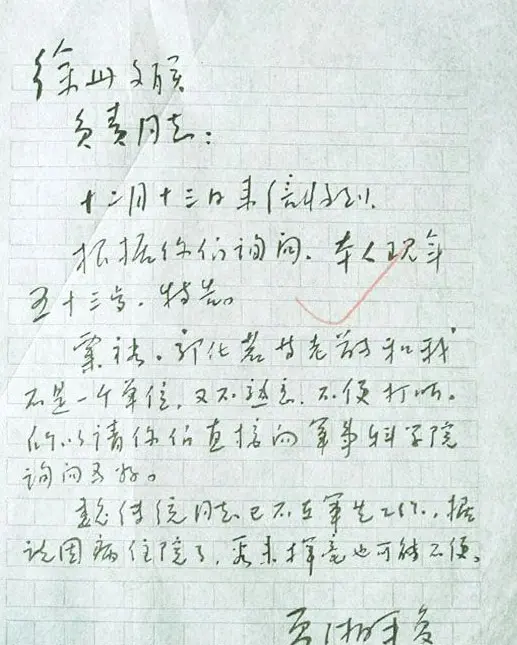 徐州文联
负责同志:
十二月十三日来信收到.
根据你们询问.本人现年
五十三岁.特告。
粟裕.郭化若考老前和我
不是一个单位,又不熟悉.不便打听。
所以请你们直接向军事科学院
询问为好。
同志已不在军先工作.据
说因病住院了,看来挥毫也可能不便。
夏湘平复